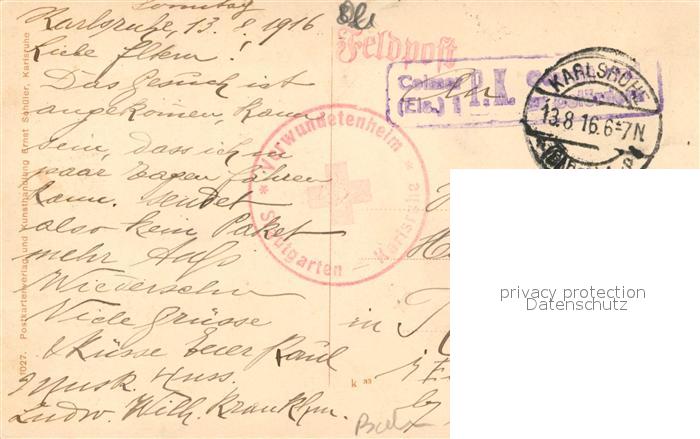 Sonntag
Karlsruhe, 13. 8 1916
Liebe Eltern!
Das Gesuch ist
angekommen, kann
sein, dass ich in
paar Tagen fahren
kann. sendet
also kein Paket
mehr Aufs
Wiedersehn
Viele Grüsse
& Küsse Euer Paul
Musk.
Ludw. Wilh. Krankhm.
1027. Postkartenverlag und Kunsthandlung Ernst Schüler, Karlsruhe
Feldpost
An
Colmar P. K.
(Els.) 1
KARLSRUHE
13.8.16.6-7N
* Verwundetenheim *
Stadtgarten - Karlsruhe
in
privacy protection
Datenschutz